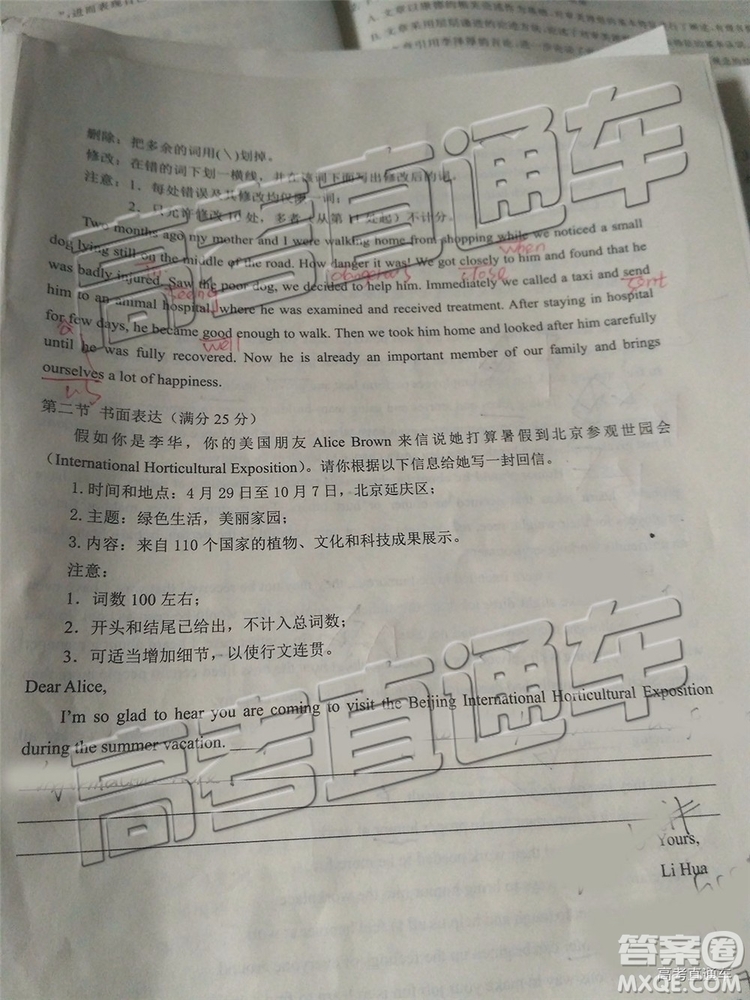 ，进而表现自
A. 文章以
B. 文章采用层层递进的论述方法，
删除：把多余的词用(＼)划掉。
修改：在错的词下划一横线，并在该词下面写出修改后的词。
注意：1. 每处错误及其修改均仅限一词；
2. 只允许修改10处，多者（从第11处起）不计分。
Two months ago my mother and I were walking home from shopping while we noticed a small
when
dog lying still on the middle of the road. How danger it was! We got closely to him and found that he
in dangerous close
was badly injured. Saw the poor dog, we decided to help him. Immediately we called a taxi and send
Seeing sent
him to an animal hospital, where he was examined and received treatment. After staying in hospital
for few days, he became good enough to walk. Then we took him home and looked after him carefully
a well
until he was fully recovered. Now he is already an important member of our family and brings
ourselves a lot of happiness.
us
第二节 书面表达（满分 25 分）
假如你是李华，你的美国朋友 Alice Brown 来信说她打算暑假到北京参观世园会
（International Horticultural Exposition）。请你根据以下信息给她写一封回信。
1. 时间和地点：4 月 29 日至 10 月 7 日，北京延庆区；
2. 主题：绿色生活，美丽家园；
3. 内容：来自 110 个国家的植物、文化和科技成果展示。
注意：
1. 词数 100 左右；
2. 开头和结尾已给出，不计入总词数；
3. 可适当增加细节，以使行文连贯。
Dear Alice,
I'm so glad to hear you are coming to visit the Beijing International Horticultural Exposition
during the summer vacation.
Yours,
Li Hua
高考直通车
高考直通车
高考直通车
答案圈
高考直通车
MXQE.COM